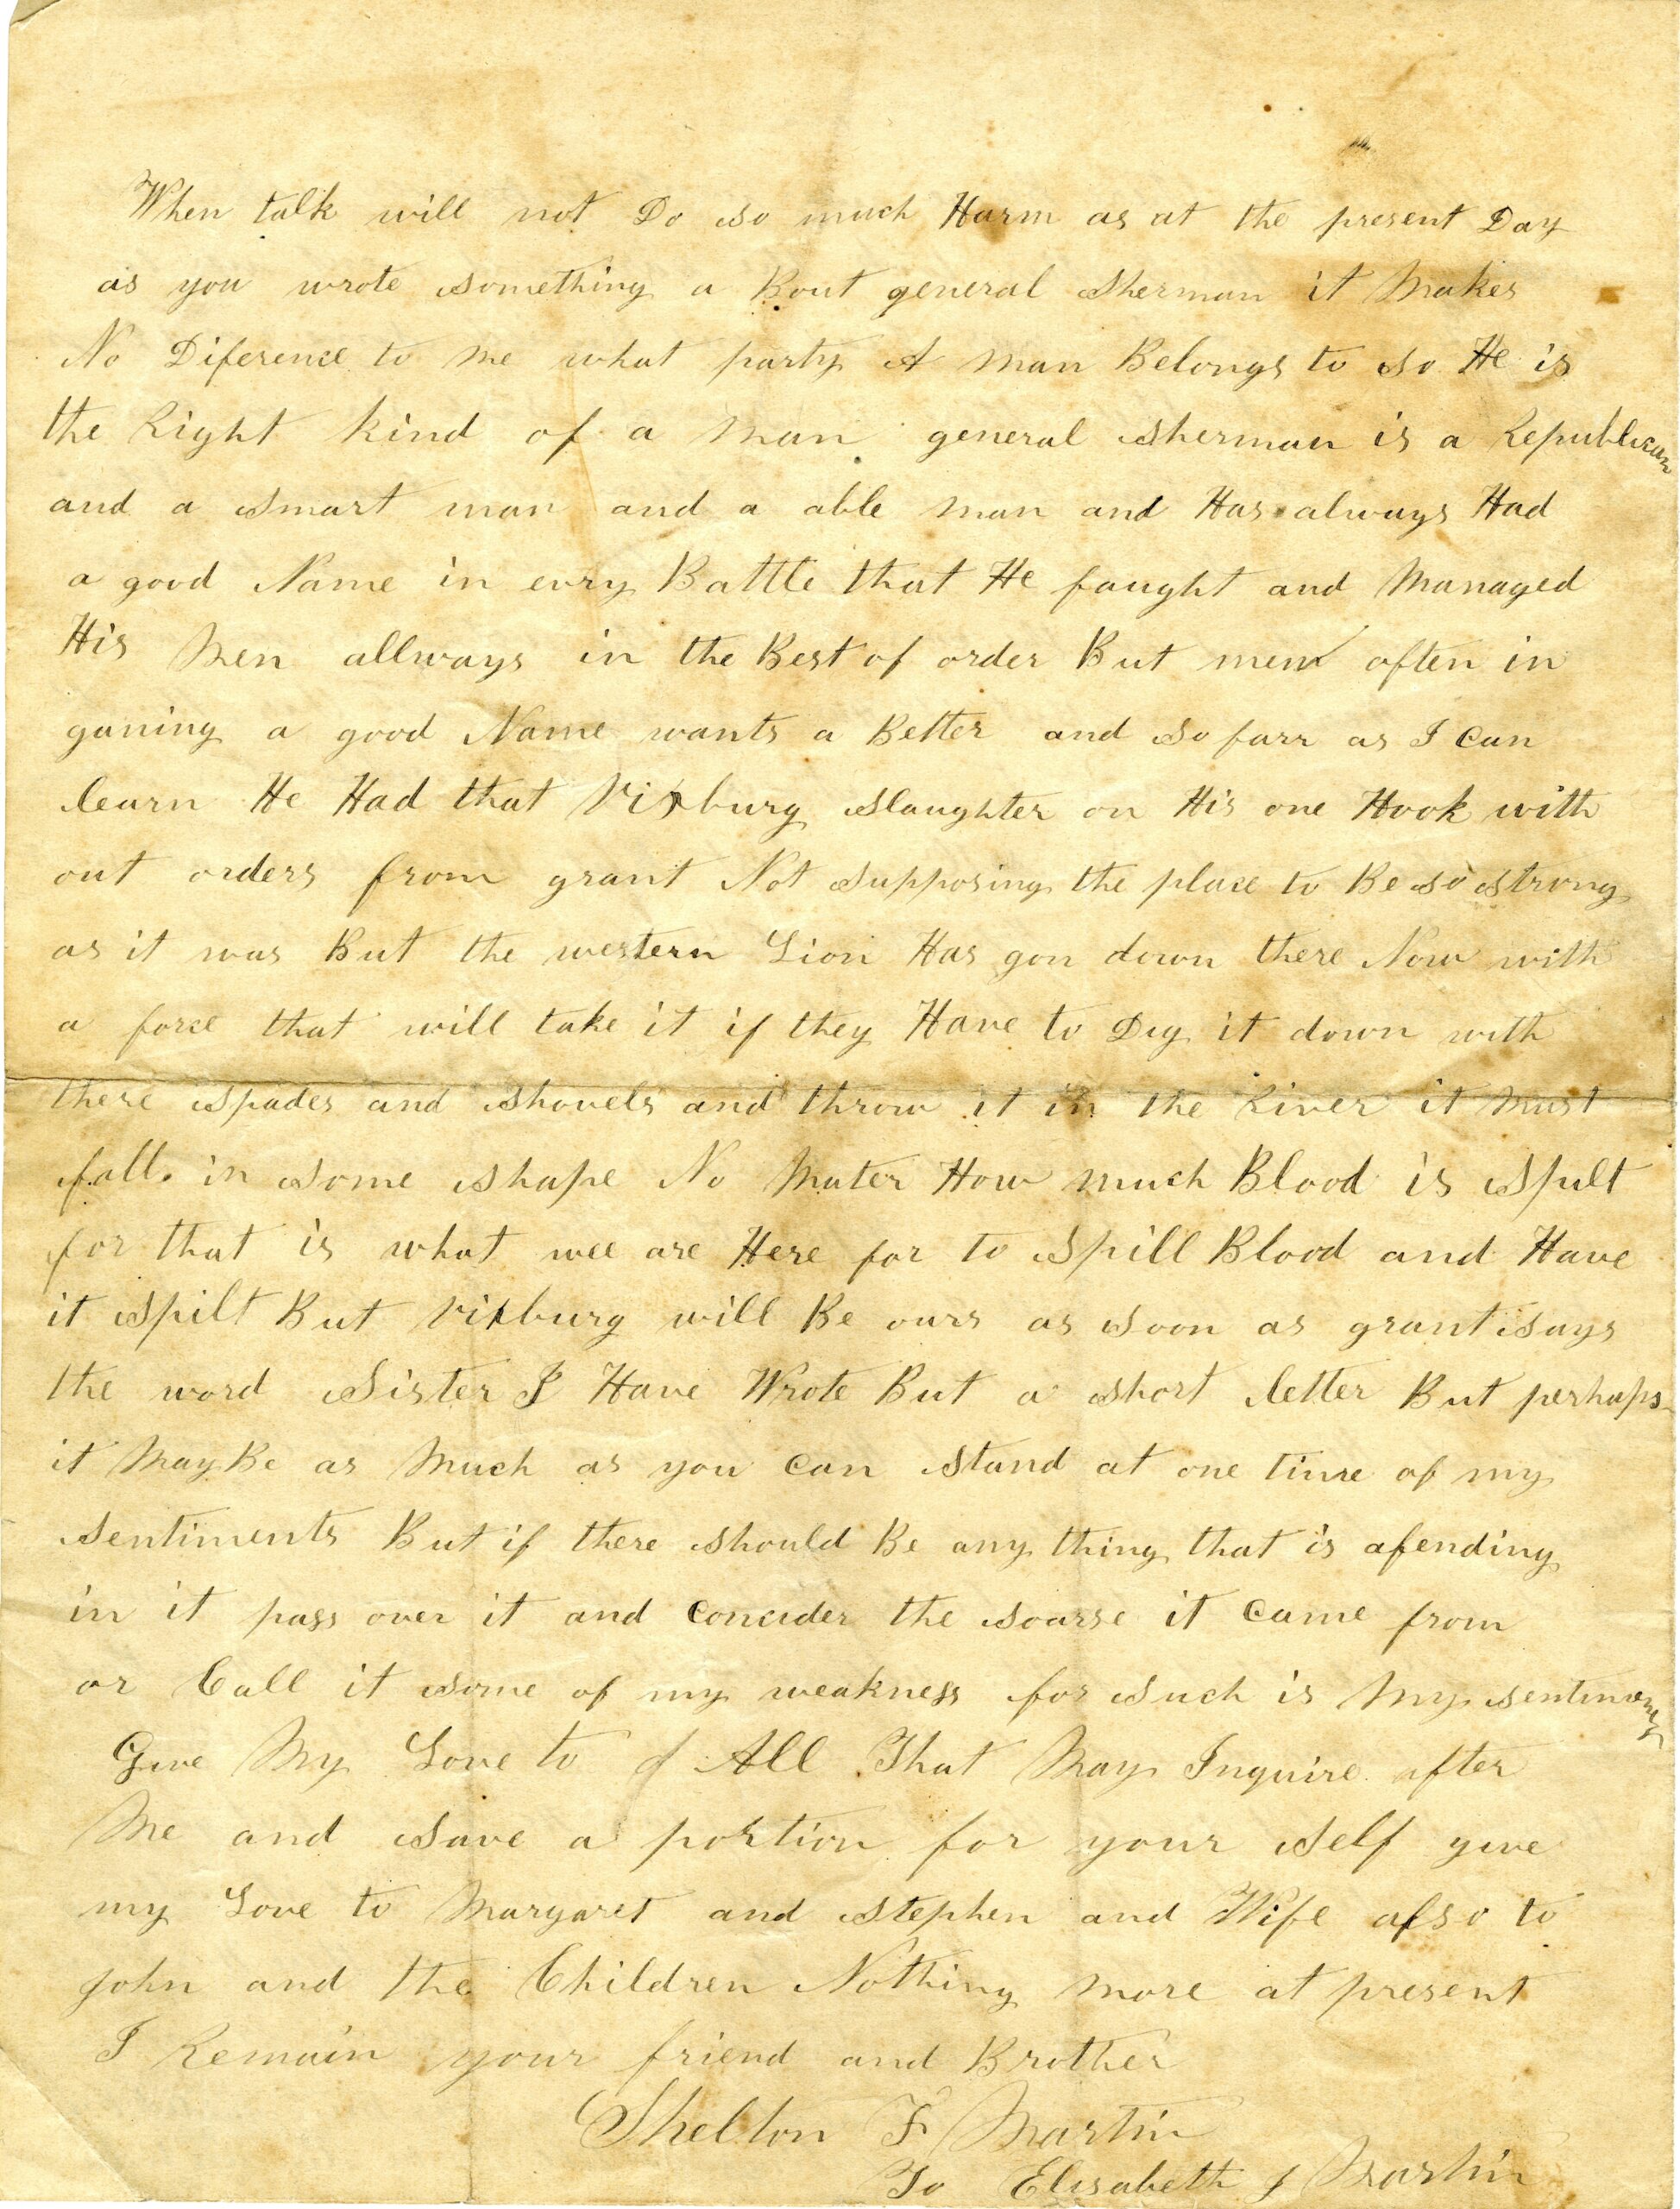 When talk will not Do so much Harm as at the present Day
as you wrote something a Bout general Sherman it Makes
No Diference to me what party A man Belongs to so He is
the Right kind of a man general Sherman is a Republican
and a smart man and a able man and Has always Had
a good Name in evry Battle that He faught and Managed
His Men allways in the Best of order But men often in
ganing a good Name wants a Better and so farr as I can
learn He Had that Vixburg slaughter on His one Hook with
out orders from grant Not supposing the place to Be so strong
as it was But the western Lion Has gon down there Now with
a force that will take it if they Have to Dig it down with
there spades and shovels and throw it in the River it must
fall in some shape No Mater How much Blood is Spilt
for that is what wee are Here for to Spill Blood and Have
it spilt But Vixburg will Be ours as soon as grant says
the word Sister I Have Wrote But a short letter But perhaps
it May Be as Much as you can stand at one time of my
sentiments But if there should Be any thing that is afending
in it pass over it and concider the soarse it came from
or Call it some of my weakness for such is My sentiments
Give My Love to All That May Inquire after
Me and save a portion for your self give
my Love to Margaret and Stephen and Wife also to
John and the Children Nothing more at present
I Remain your friend and Brother
Shelton F Martin
To Elisabeth J Martin